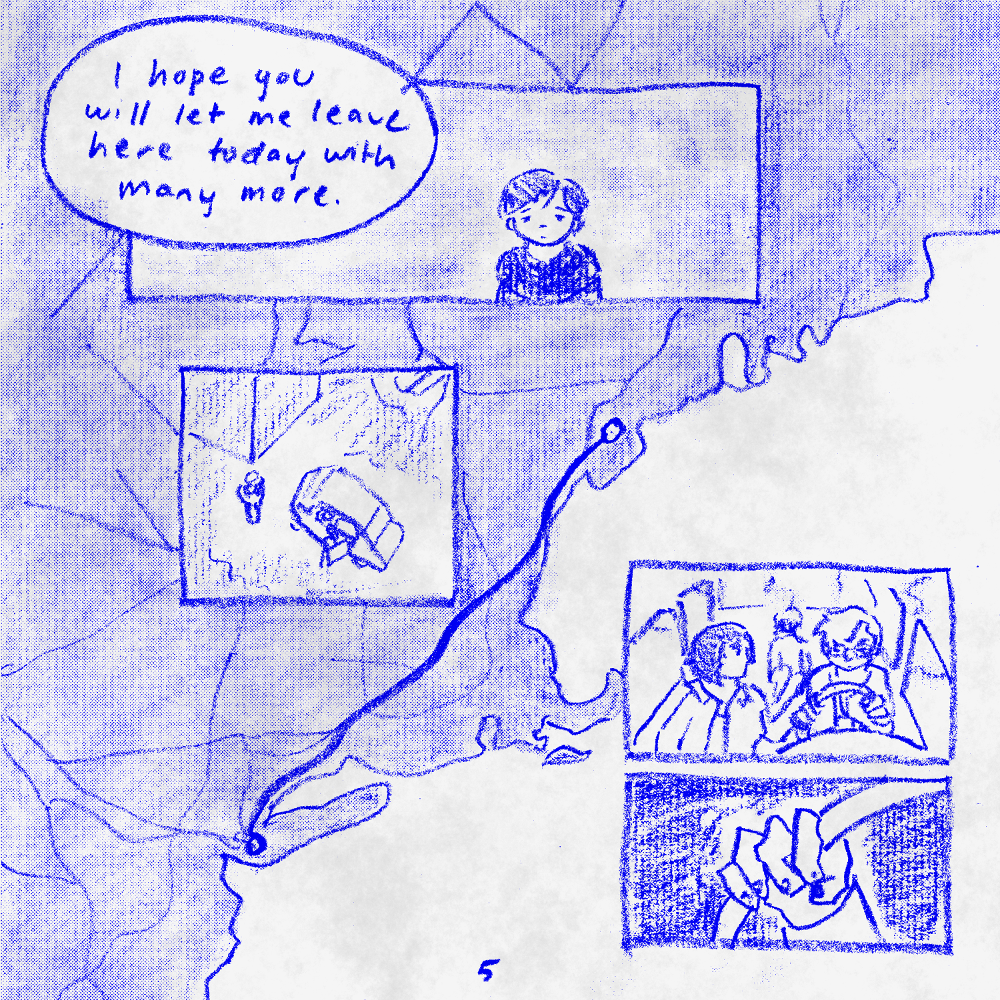 I hope you
will let me leave
here today with
many more.
5